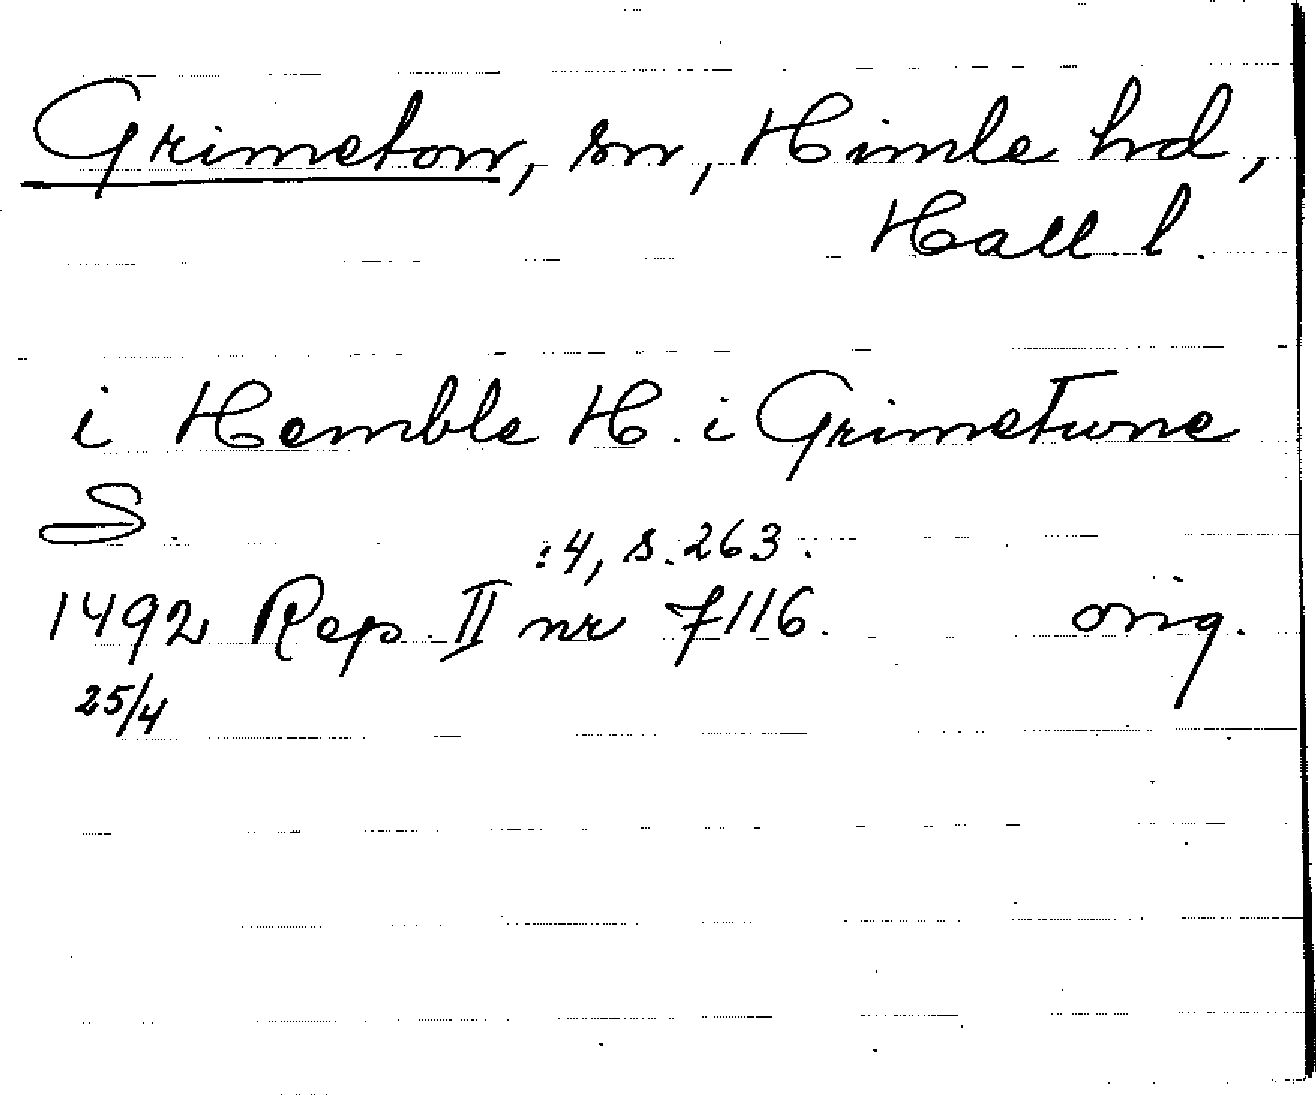 Grimeton, sn, Himle hd,
Hall l.
i Hemble H. i Grimetwne
S.
:4, s. 263.
1492 Rep. II nr 7116. orig.
25/4